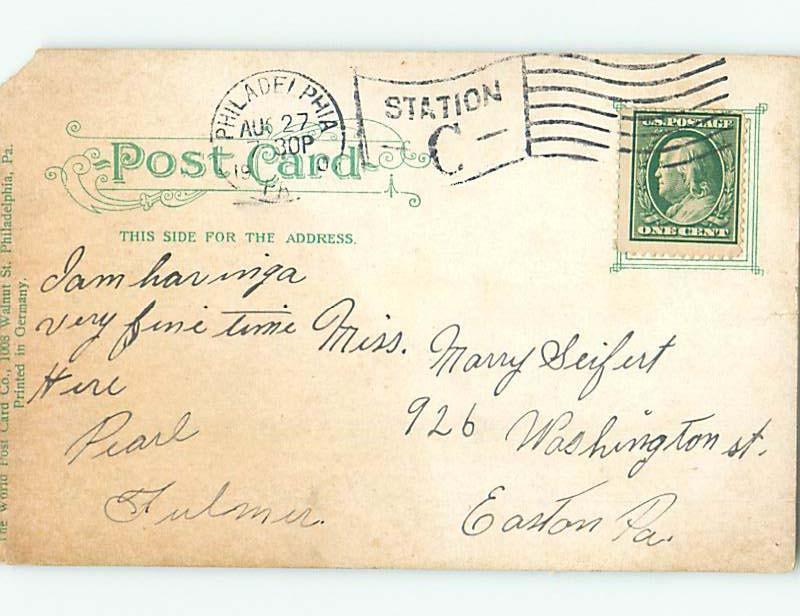 PHILADELPHIA
AUG 27
30P
19 0
PA
STATION
- C -
U.S. POSTAGE
ONE CENT
Post Card
THIS SIDE FOR THE ADDRESS.
The World Post Card Co., 1008 Walnut St. Philadelphia, Pa.
Printed in Germany.
I am having a
very fine time
Here
Pearl
Fulmer.
Miss. Marry Seifert
926 Washington st.
Easton Pa.